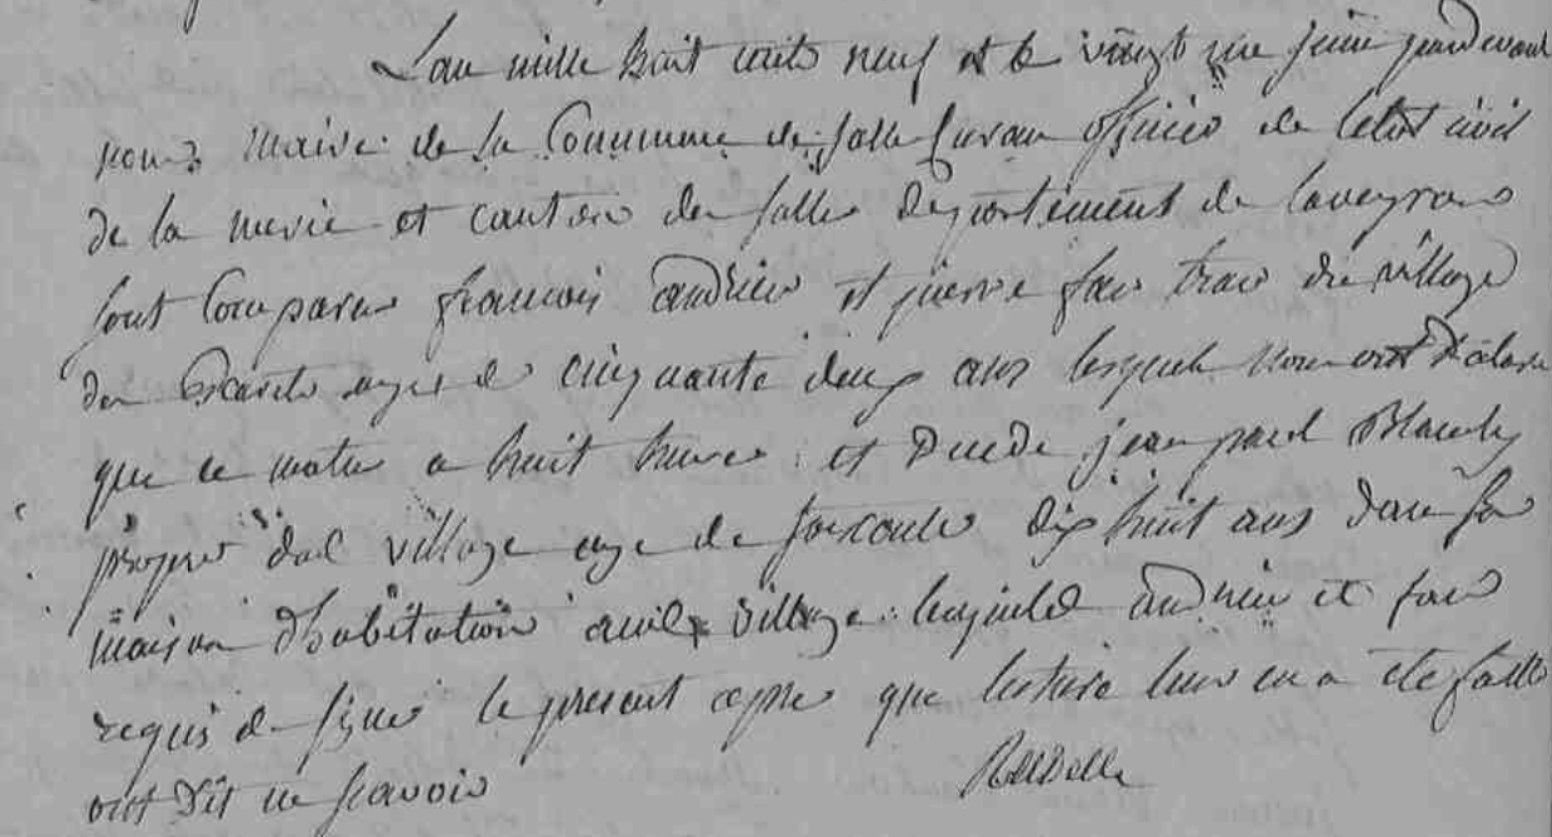 Lan mille huit cents neuf et le vingt un juin pardevant
nous maire de la Commune de salle Curan officier de letat civil
de la merie et canton de salles departement de laveyron
sont Comparus francois andrieu et pierre fau du village
de ages de cinquante deux ans lesquels nous ont declare
que ce matin a huit heures et decede jean paul Blanchy
propre dud village age de soixante dix huit ans dans sa
maison dhabitation audit village lesquels andrieu et fau
requis de signer le present apres que lecture leur en a ete faitte
ont dit ne scavoir